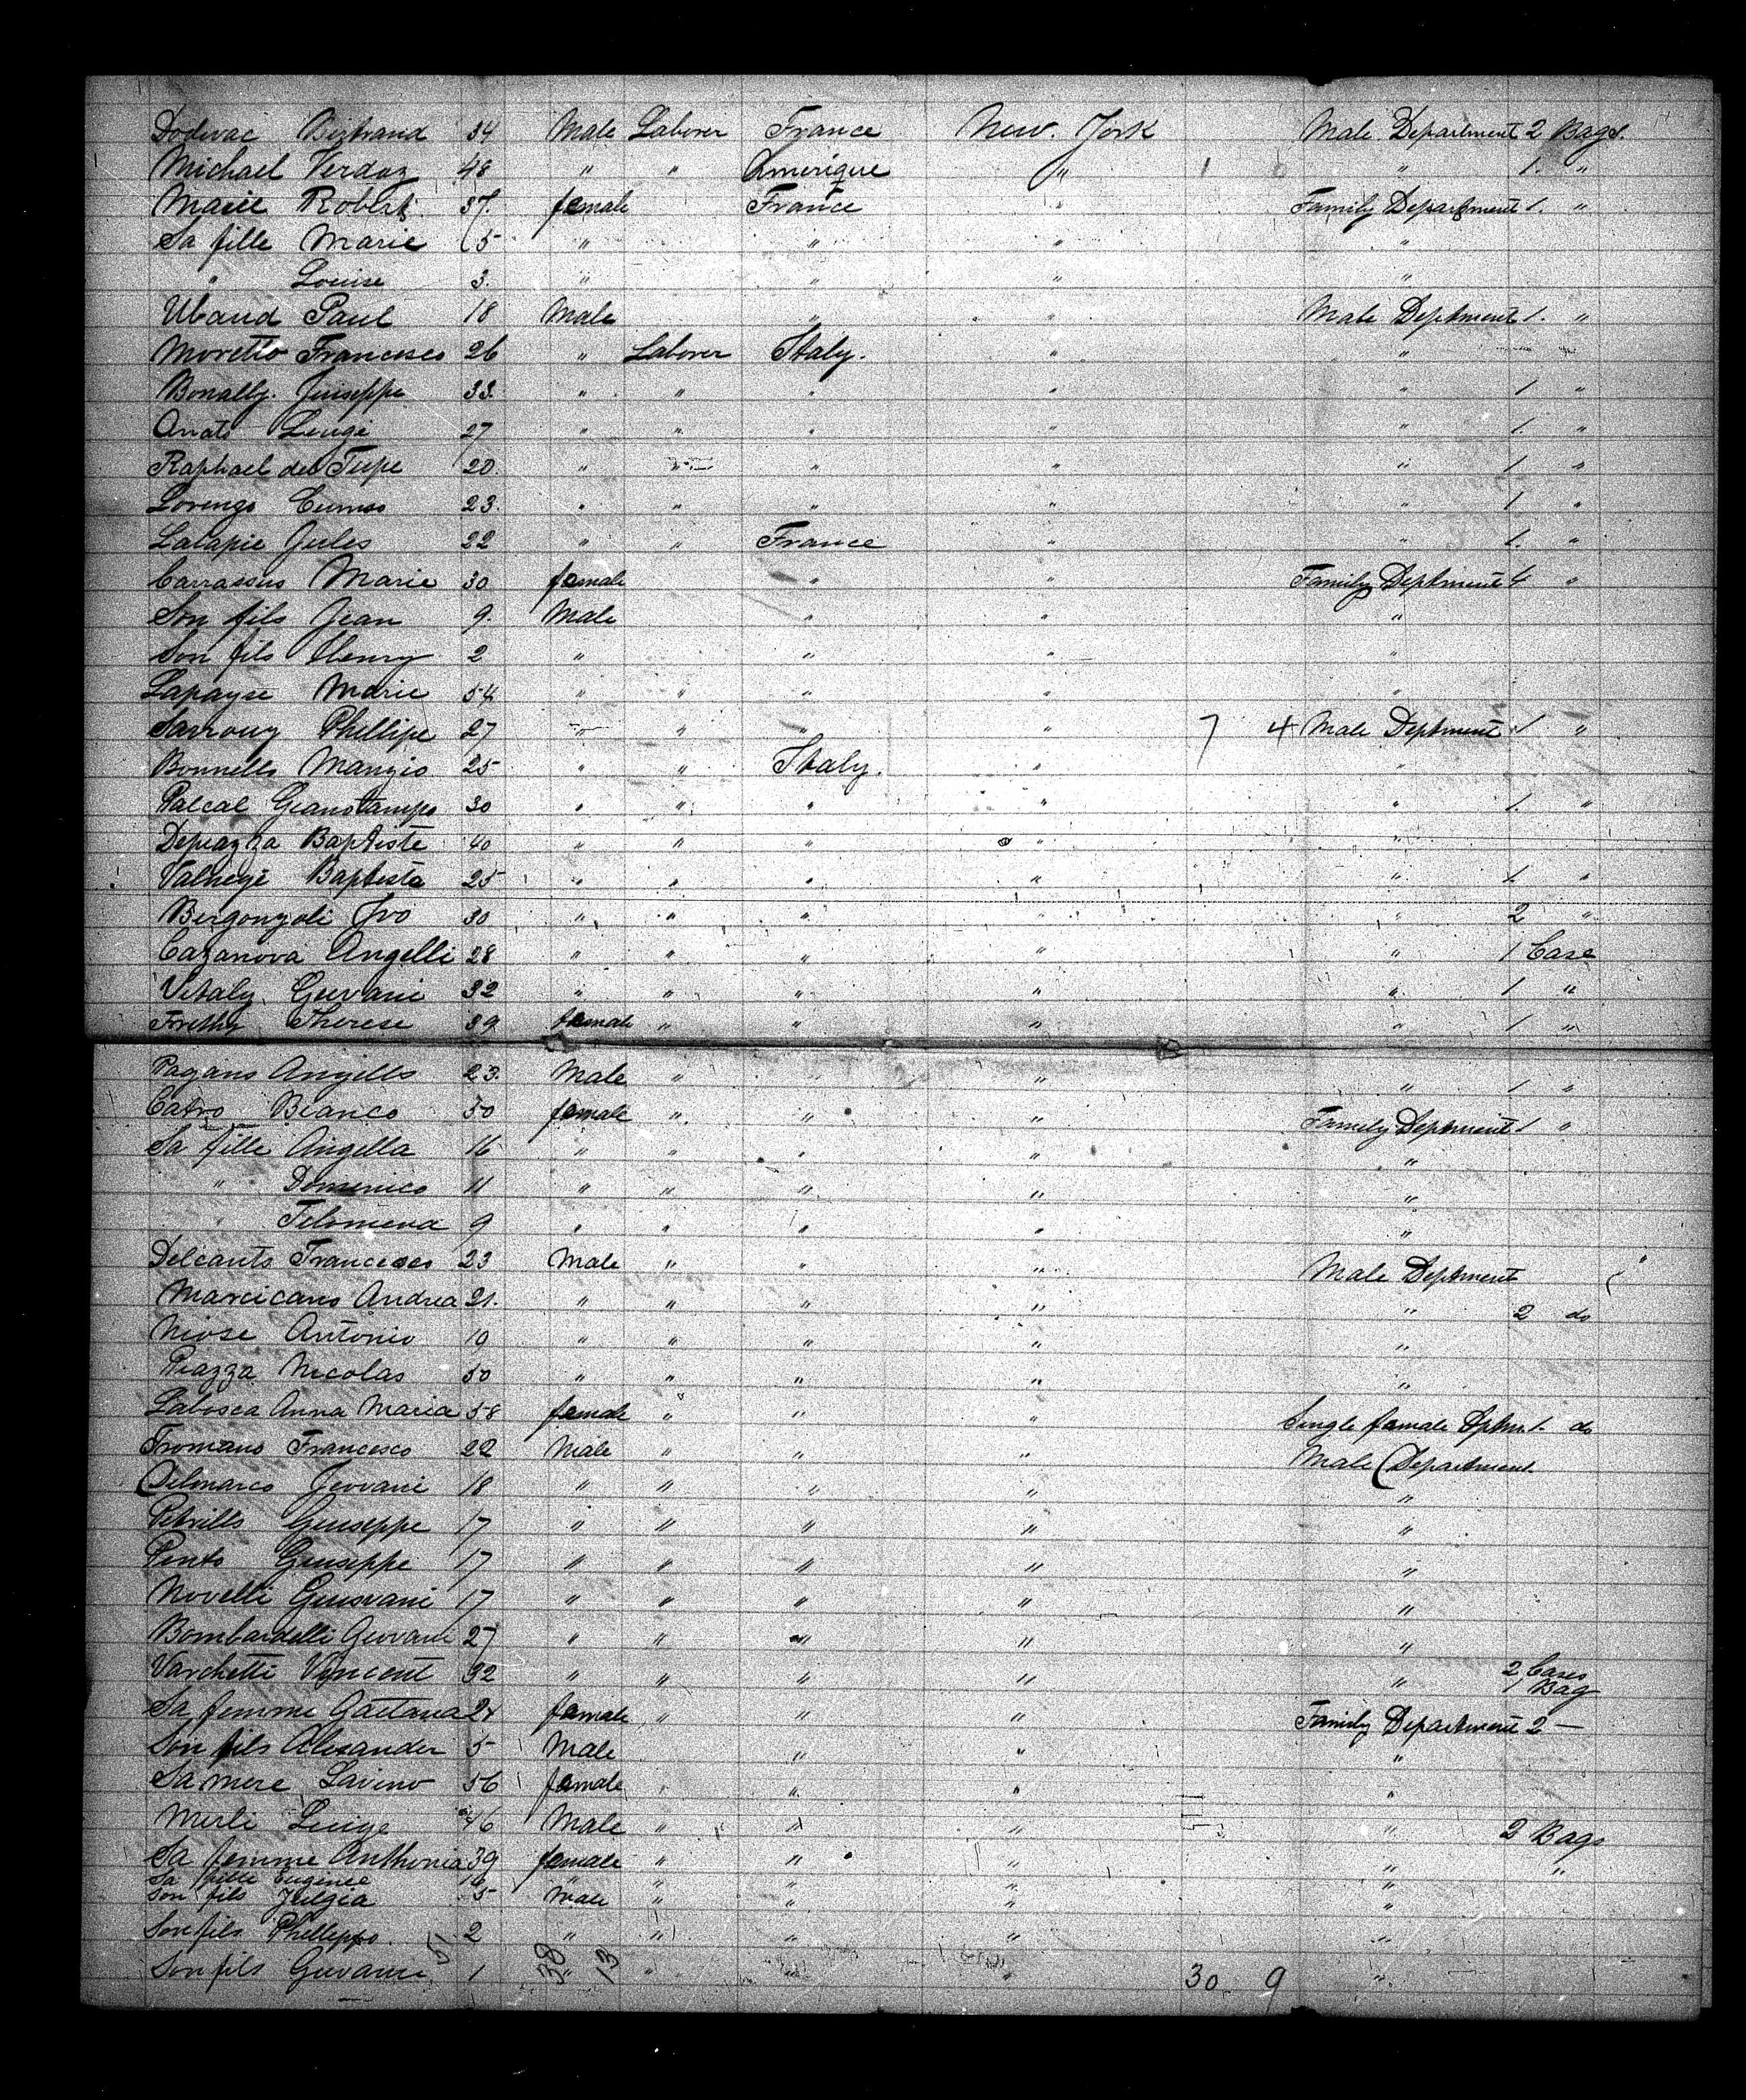 Dodevac Bertrand 34 Male Laborer France New. York Male Department 2 Bags.
Michael Verdoz 48 " " Amerique " 1 " 1. "
Marie Robert 37. female France " Family Department 1. "
Sa fille Marie 5 " " " "
" Louise 3. " " " "
Ubaud Paul 18 Male " " Male Deptment 1. "
Moretto Francesco 26 " Laborer Italy. " "
Bonally. Juiseppe 33. " " " " " 1 "
Anato Luige 27 " " " " " 1. "
Raphael del Tupe 20. " " " " " 1 "
Lorengo Cumso 23. " " " " " 1 "
Lalapie Jules 22 " " France " " 1. "
Carrassus Marie 30 female " " Family Deptment 4 "
Son fils Jean 9. Male " " "
Son fils Henry 2 " " " "
Lapayse Marie 54 " " " " "
Sarrouy Phillipe 27 " " " " 7 4 Male Deptment 1 "
Bonnello Mangio 25 " " Italy. " "
Palcal Gianotampo 30 " " " " " 1. "
Depiazza Baptiste 40 " " " " "
Valnegi Baptista 25 " " " " " 1. "
Bergonzoli Ivo 30 " " " " " 2 "
Cazanova Angelli 28 " " " " " 1 Case
Vitaly Geovani 32 " " " " " 1 "
Therese 39 female " " " " 1 "
Pagano Angello 23. Male " " " " 1 "
Catro Bianco 50 female " " " Family Deptment 1 "
Sa fille Angella 16 " " " " "
" Domenico 11 " " " " "
" Filomena 9 " " " " "
Delcanto Francesco 23 Male " " " Male Deptment "
Marcicano Andrea 21. " " " " " 2 do
Niose Antonio 19 " " " " "
Piazza Nicolas 50 " " " " "
Labosca Anna Maria 58 female " " " Single female Dptm. 1. do
Tromano Francesco 22 Male " " " Male Department.
Delmarco Jeovani 18 " " " " "
Petrillo Giuseppe 17 " " " " "
Pento Giuseppe 17 " " " " "
Novelli Giusvani 17 " " " " "
Bombardelli Geovani 27 " " " " "
Varchetti Vincent 32 " " " " " 2 Cases 1 Bag
Sa femme Gaetana 24 female " " " Family Department 2 —
Son fils Alexander 5 Male " " "
Sa mere Lavino 56 female " " " "
Merli Luige 46 Male " " " " 2 Bags
Sa femme Anthonia 39 female " " " " "
Sa fille Eugenee 10 " " " " "
Son fils Julgia 5 Male " " " "
Son fils Phillippo. 2 " " " " "
Son fils Geovanni 51 1 38 13 " " " " 30 9 "